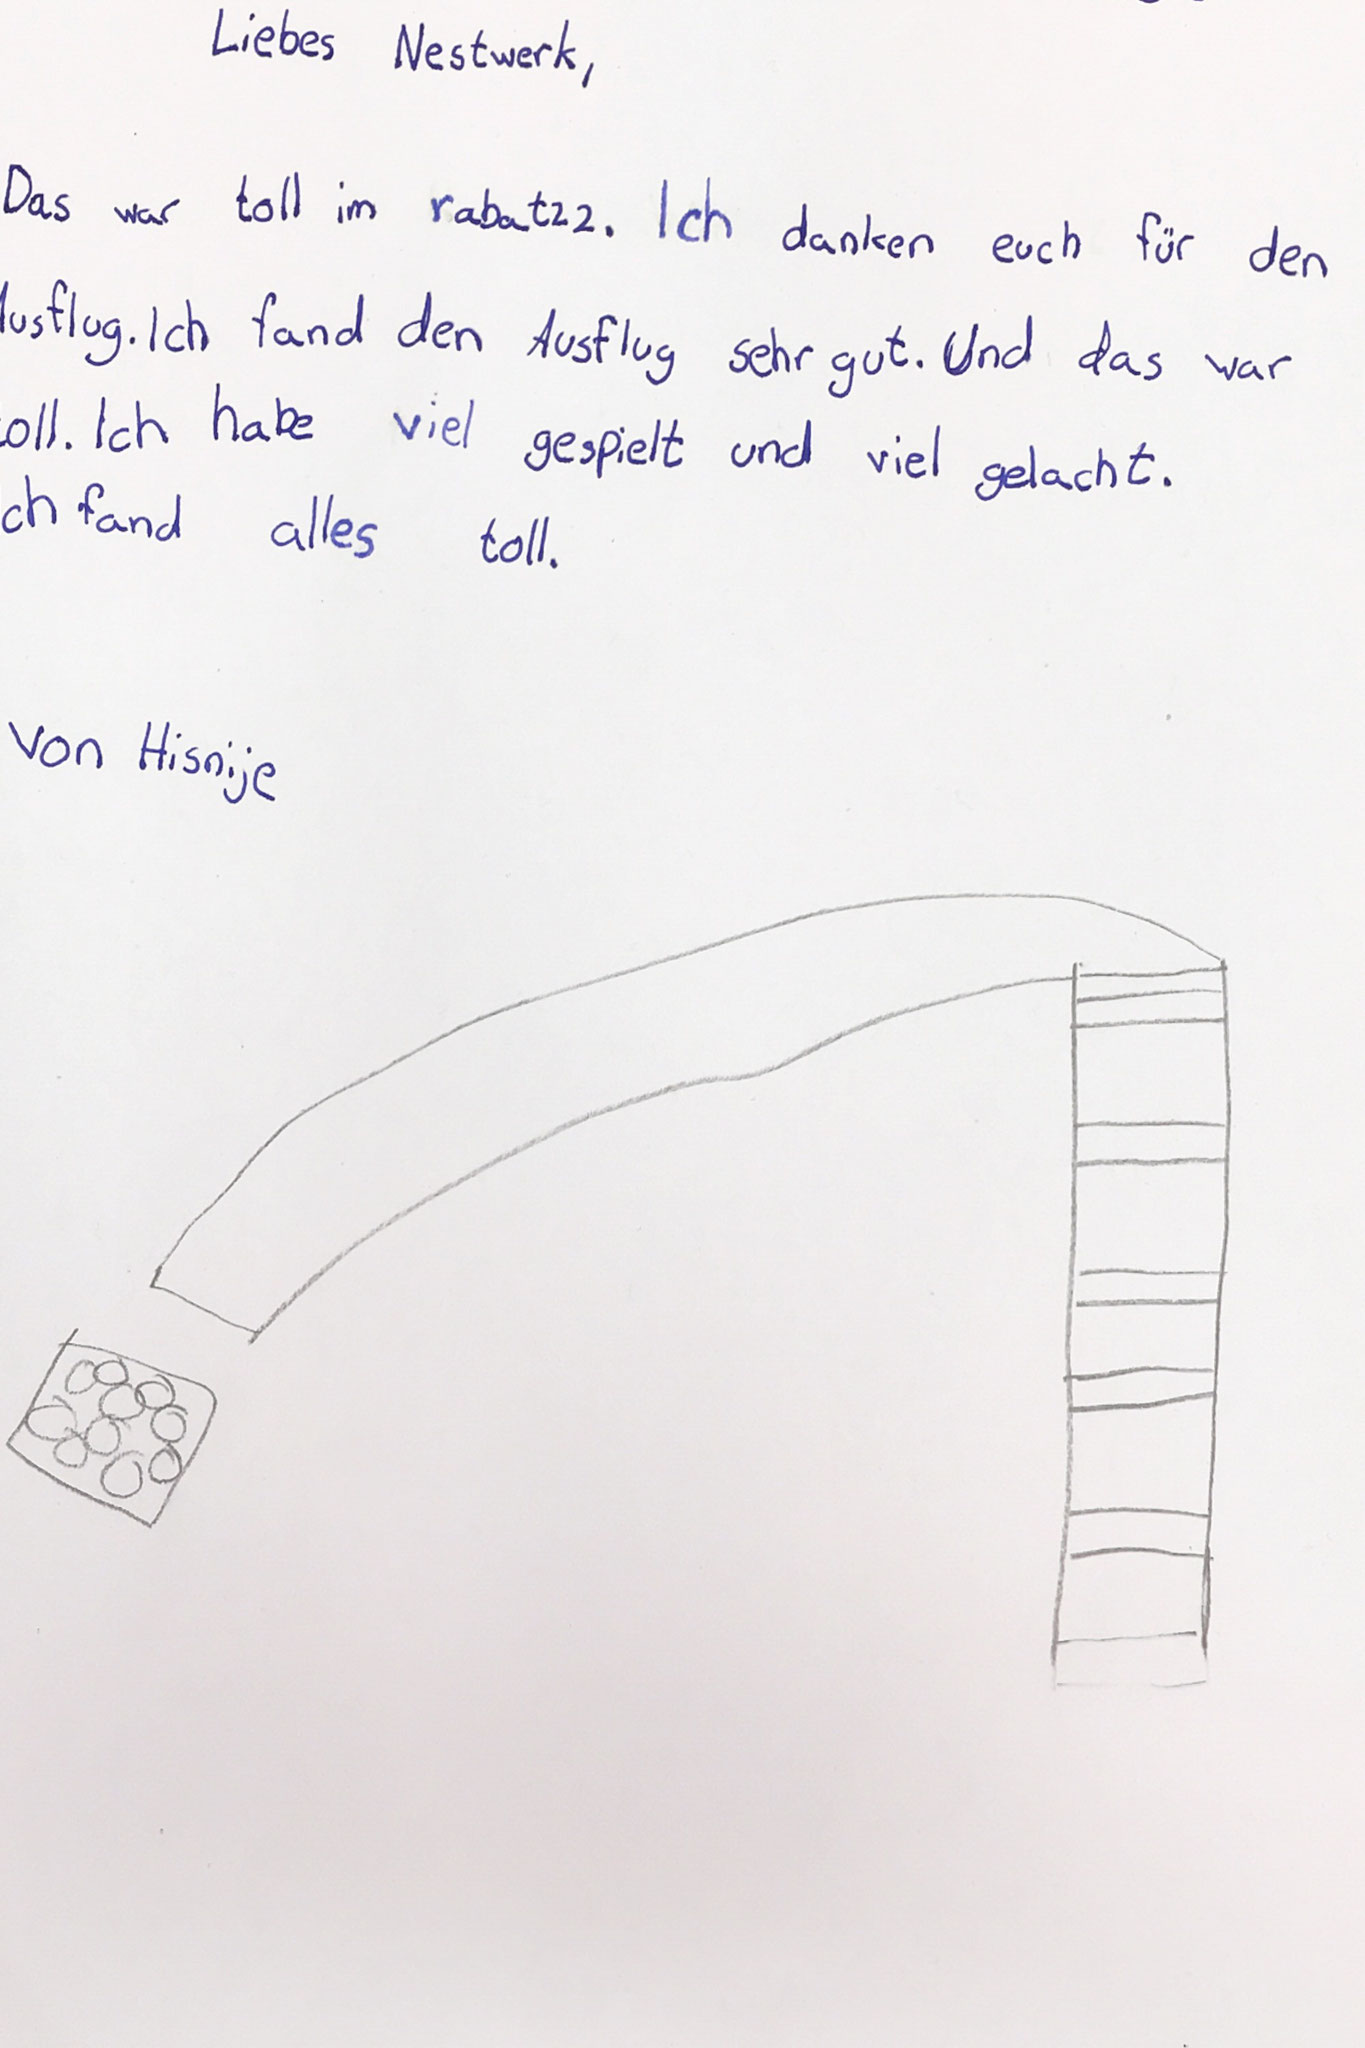 Liebes Nestwerk,
Das war toll im rabatzz. Ich danken euch für den
Ausflug. Ich fand den Ausflug sehr gut. Und das war
toll. Ich habe viel gespielt und viel gelacht.
Ich fand alles toll.
Von Hisnije